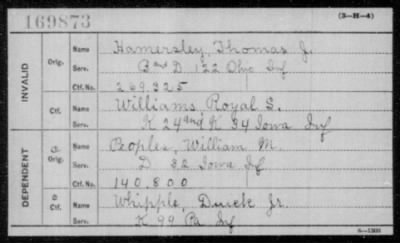 169873
(3-H-4)
INVALID
Orig.
Name Hamersley, Thomas J.
Serv. B and D 122 Ohio Inf
Ctf. No. 269.325
Ctf.
Name Williams, Royal S.
Serv. K 24 and K 34 Iowa Inf
DEPENDENT
Orig.
Name Peoples, William M.
Serv. D 32 Iowa Inf
Ctf. No. 140.800
Ctf.
Name Whipple, Duick Jr.
Serv. K 99 Pa Inf